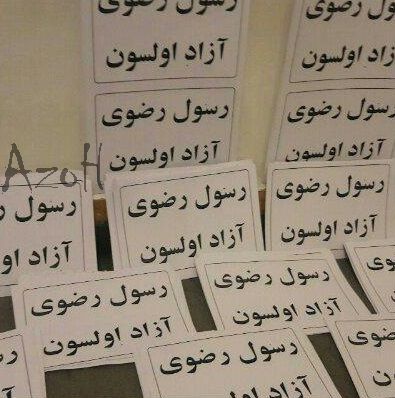 رسول رضوی
آزاد اولسون
رسول رضوی
آزاد اولسون
رسول رضوی
آزاد اولسون
رسول رضوی
آزاد اولسون
AzoH
رسول رضوی
آزاد اولسون
رسول رضوی
آزاد اولسون
رسول رضوی
آزاد اولسون
رسول رضوی
آزاد اولسون
رسول رضوی
آزاد اولسون
رسول رضوی
آزاد اولسون